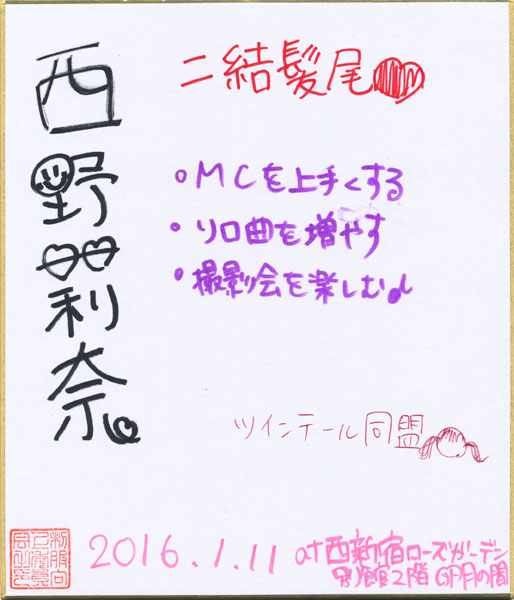 西野莉奈
二結髪尾
・MCを上手くする
・ソロ曲を増やす
・撮影会を楽しむ♪
ツインテール同盟
2016.1.11 at西新宿ローズガーデン
別館2階 卯月の間
制服向
上委員
会之印